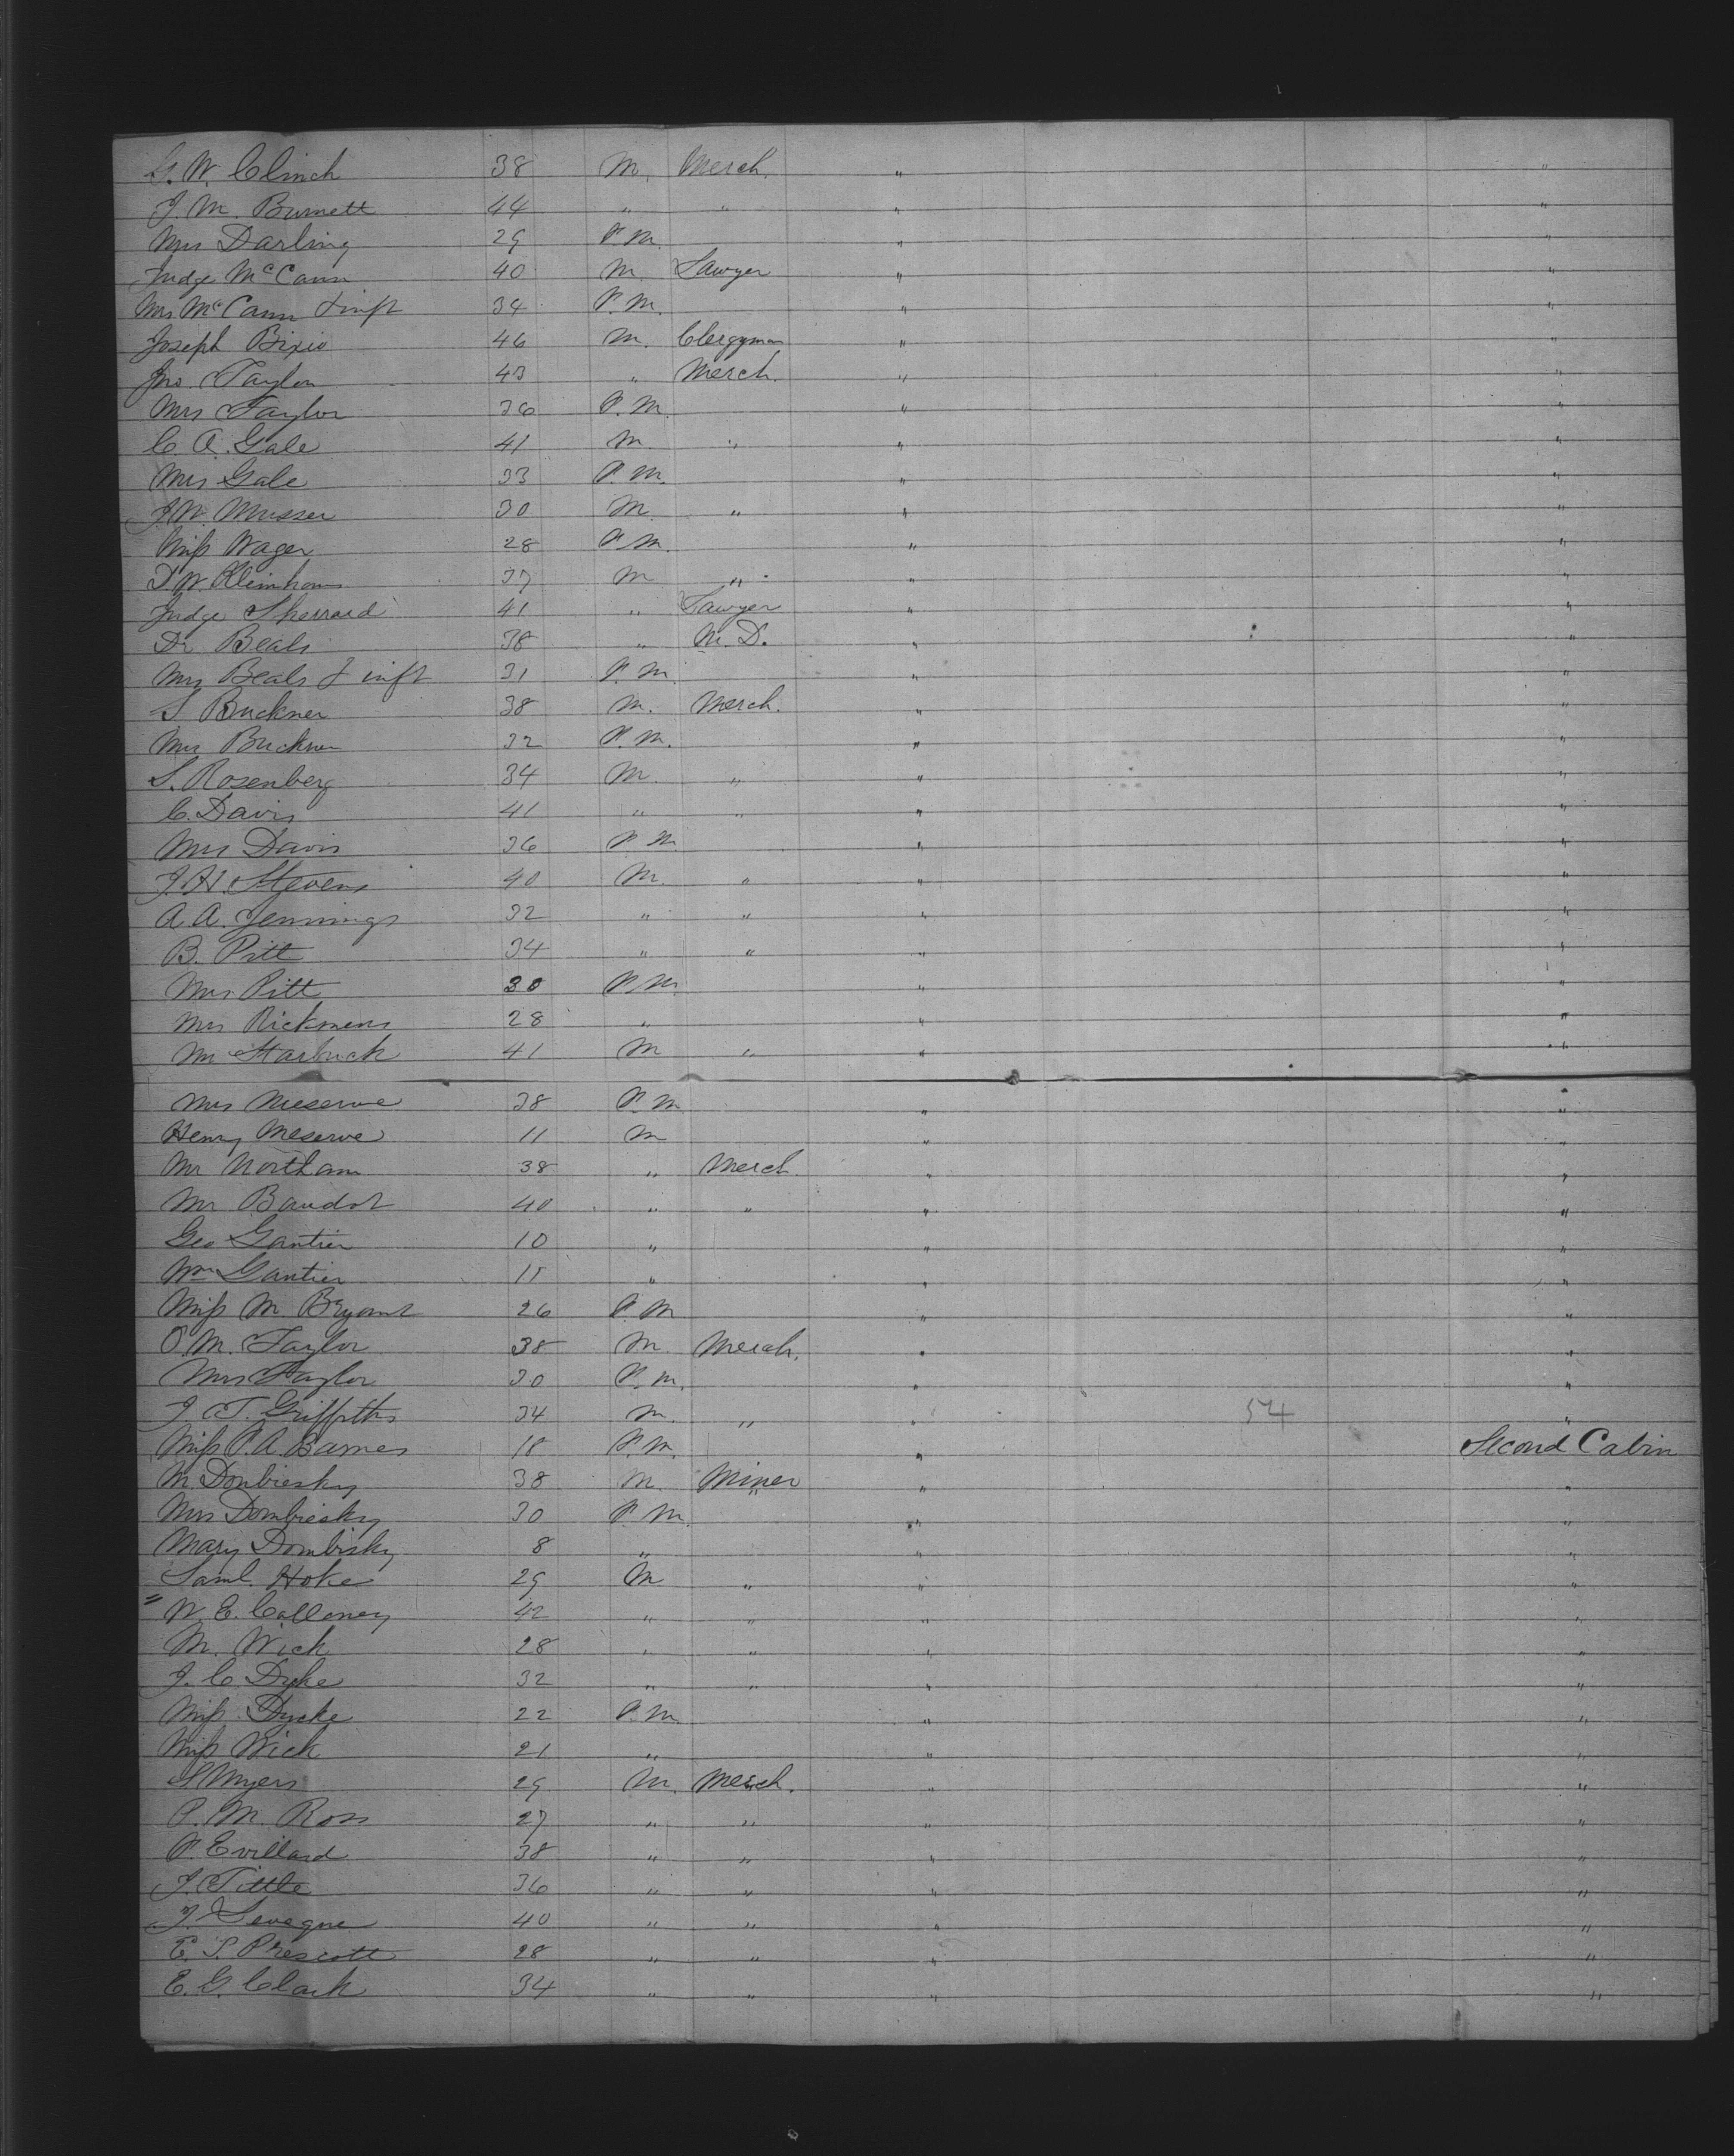 G. W. Clinch 38 M. Merch. " "
J. M. Burnett 44 " " " "
Mrs Darling 29 F. M. " "
Judge McCann 40 M Lawyer " "
Mrs McCann & inft 34 F. M. " "
Joseph Bixio 46 M. Clergyman " "
Jno. Taylor 43 " Merch. " "
Mrs Taylor 36 F. M. " "
C. A. Gale 41 M " " "
Mrs Gale 33 F. M. " "
J. W. Musser 30 M. " " "
Miss Wager 28 F. M. " "
D. W. Kleinhans 37 M " " "
Judge Sherrard 41 " Lawyer " "
Dr Beals 38 " M. D. " "
Mrs Beals & inft 31 F. M. " "
S Buckner 38 M. Merch. " "
Mrs Buckner 32 F. M. " "
S. Rosenberg 34 M. " " "
C. Davis 41 " " " "
Mrs Davis 36 F M. " "
J. H. Stevens 40 M. " " "
A A. Jennings 32 " " " "
B. Pitt 34 " " " "
Mrs Pitt 30 F. M. " "
Mrs Rickmens 28 " " "
Mr Starbuck 41 M " " "
Mrs Meserve 38 F. M " "
Henry Meserve 11 M " "
Mr Northam 38 " Merch. " "
Mr Baudot 40 " " " "
Geo Gantier 10 " " "
Wm Gantier 11 " " "
Miss M Bryant 26 F. M " "
O. M. Taylor 38 M. Merch. " "
Mrs Taylor 30 F. M. " "
J. T. Griffiths 34 M. " " 54 "
Miss P. A. Barnes 18 F. M. " Second Cabin
M. Dombiesky 38 M. Miner " "
Mrs Dombiesky 30 F. M. " "
Mary Dombisky 8 " " "
Saml. Hoke 29 M " " "
W. E. Calloney 42 " " " "
M. Wick 28 " " " "
J. C. Dyke 32 " " " "
Miss Dycke 22 F. M. " "
Miss Wick 21 " " "
S Myers 29 M. Merch. " "
P. M. Ross 27 " " " "
P. Evillard 38 " " " "
J. Tittle 36 " " " "
J. Sevegne 40 " " " "
E. S. Prescott 28 " " " "
E. G. Clark 34 " " " "